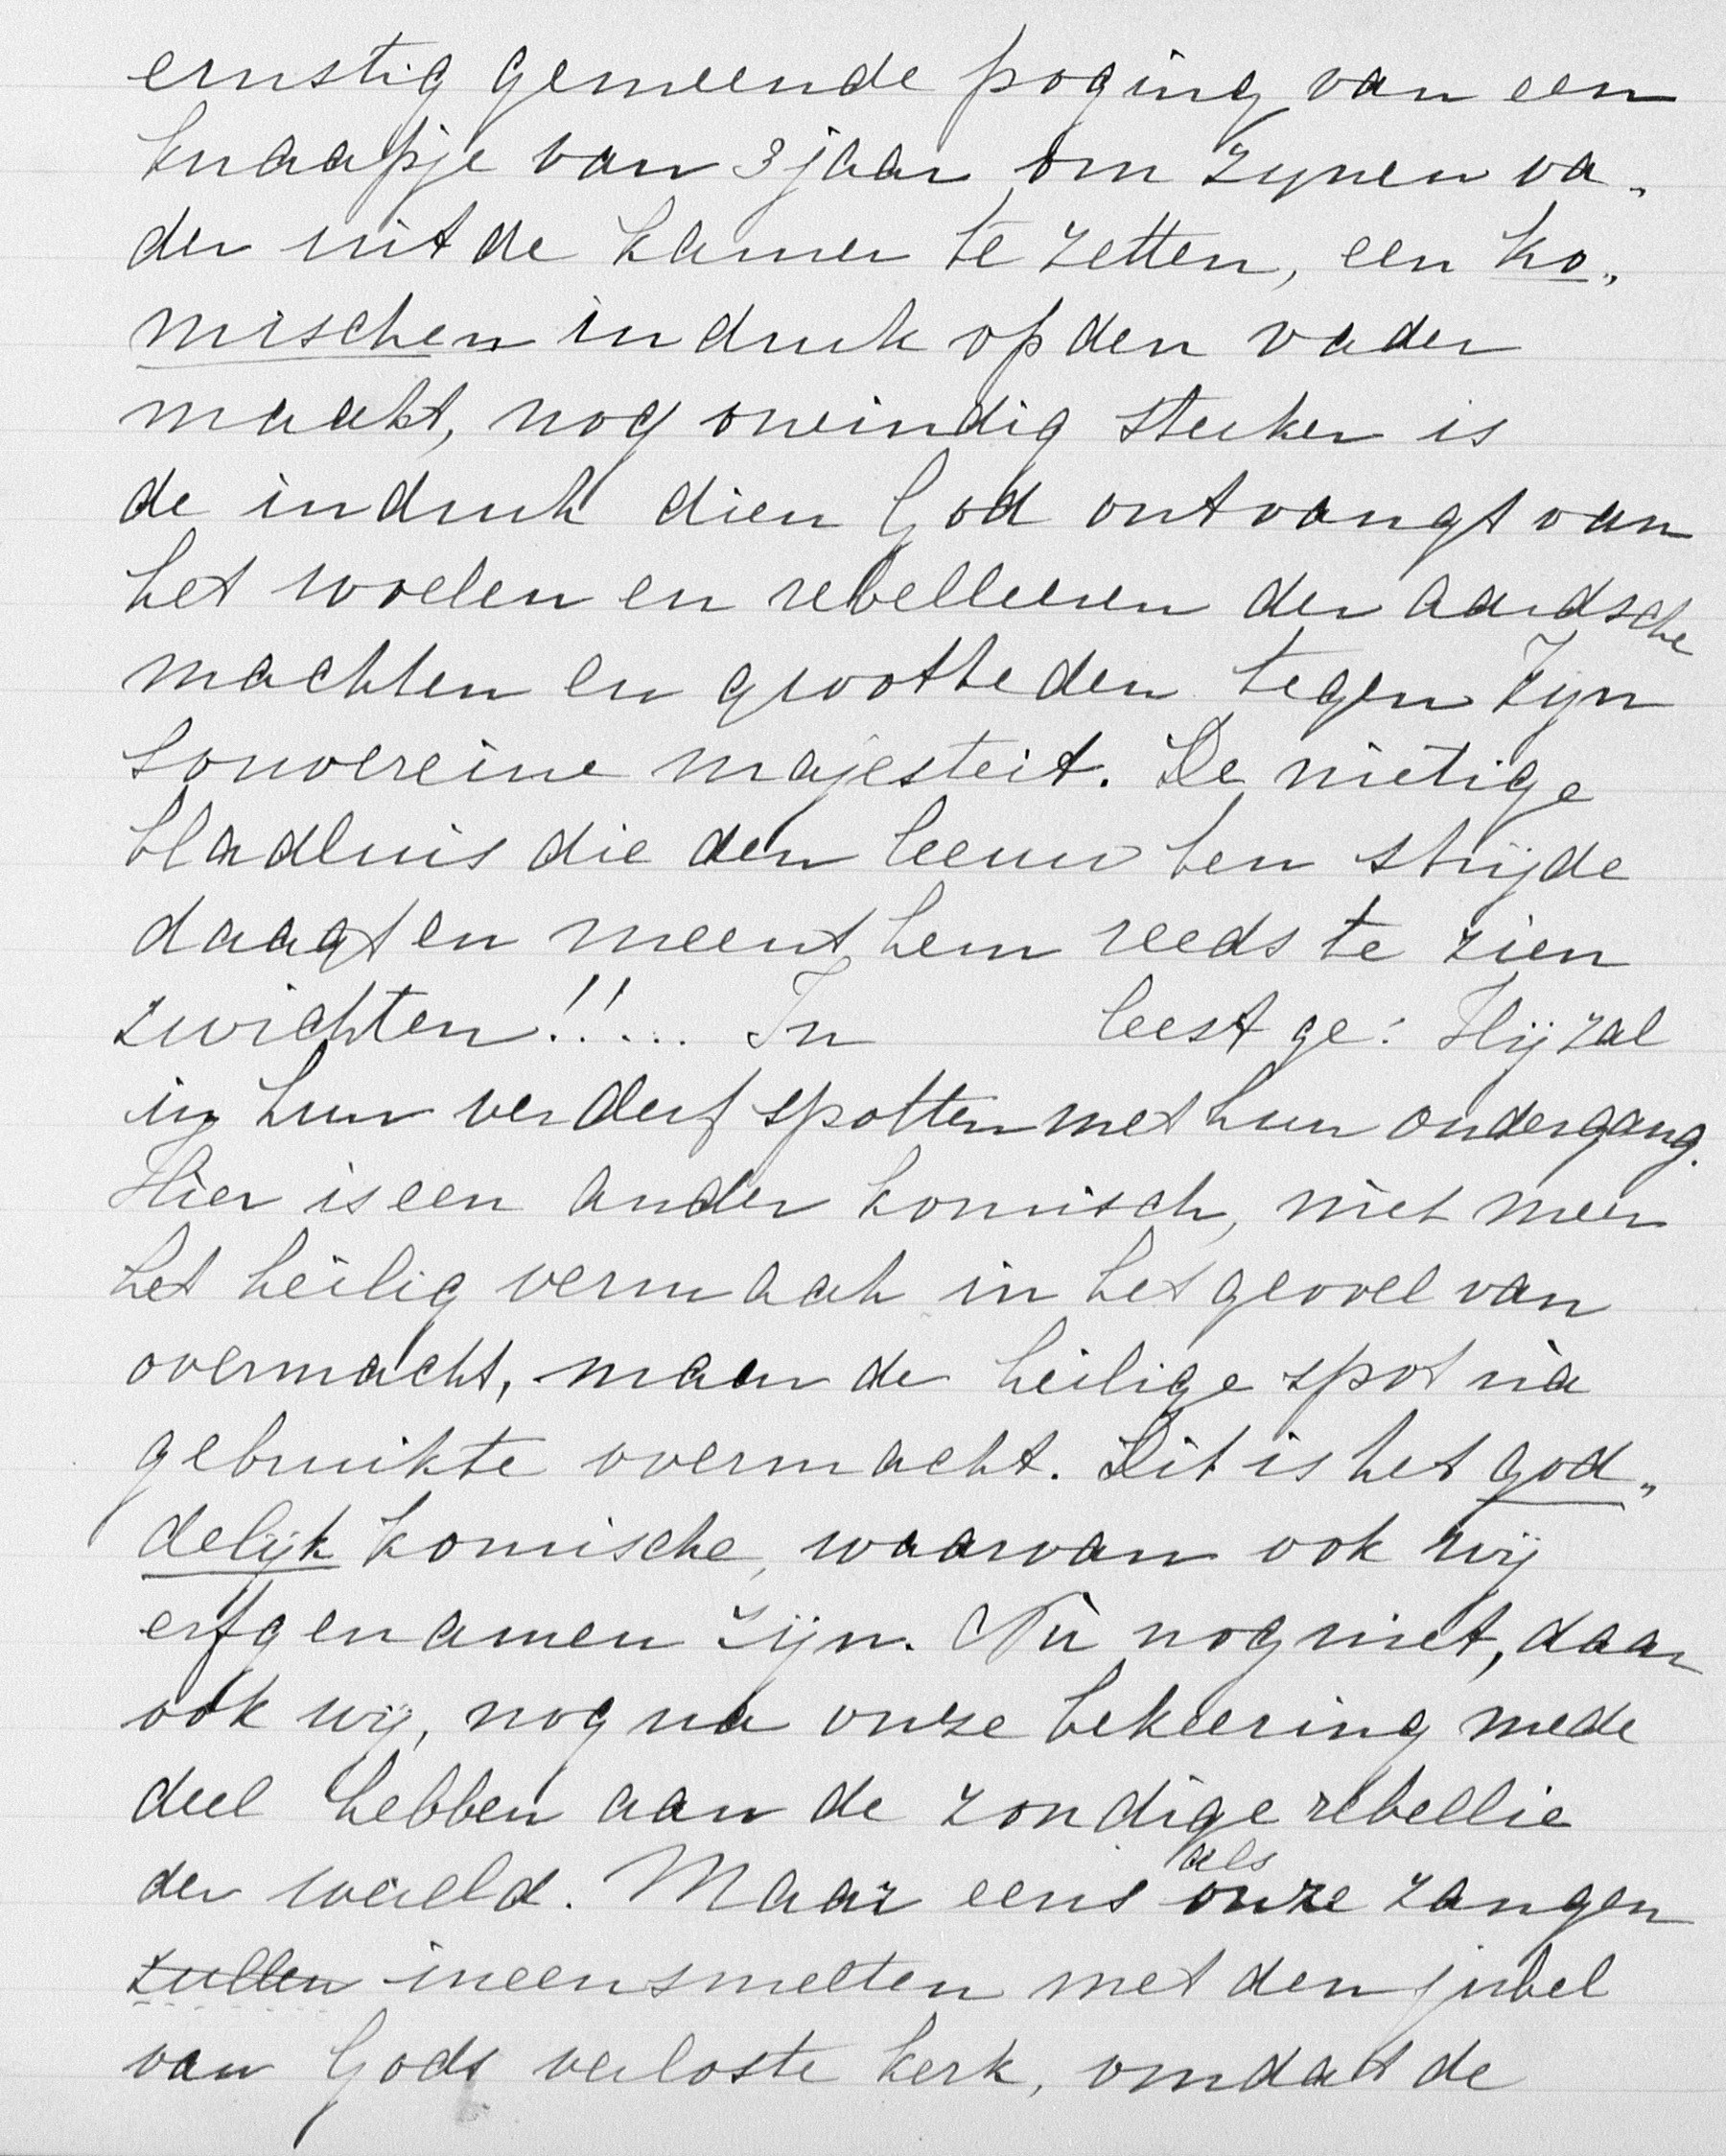 ernstig gemeende poging van een
knaapje van 3 jaar om zynen va„
der uit de kamer te zetten, een ko„
mischen indruk op den vader
maakt, nog oneindig sterker is
de indruk dien God ontvangt van
het woelen en rebelleeren der aardsche
machten en grootheden tegen Zyn
souvereine majesteit. De nietige
bladluis die den leeuw ten strijde
daagt en meent hem reeds te zien
zwichten!!... In leest ge: Hij zal
in hun verderf spotten met hun ondergang.
Hier is een ander komisch, niet meer
het heilig vermaak in het gevoel van
overmacht, maar de heilige spot nà
gebruikte overmacht. Dit is het god„
delijk komische, waarvan ook wij
erfgenamen zijn. Nù nog niet, daar
ook wij, nog na onze bekeering mede
deel hebben aan de zondige rebellie
der wereld. Maar eens als onze zangen
zullen ineensmelten met den jubel
van Gods verloste kerk, omdat de